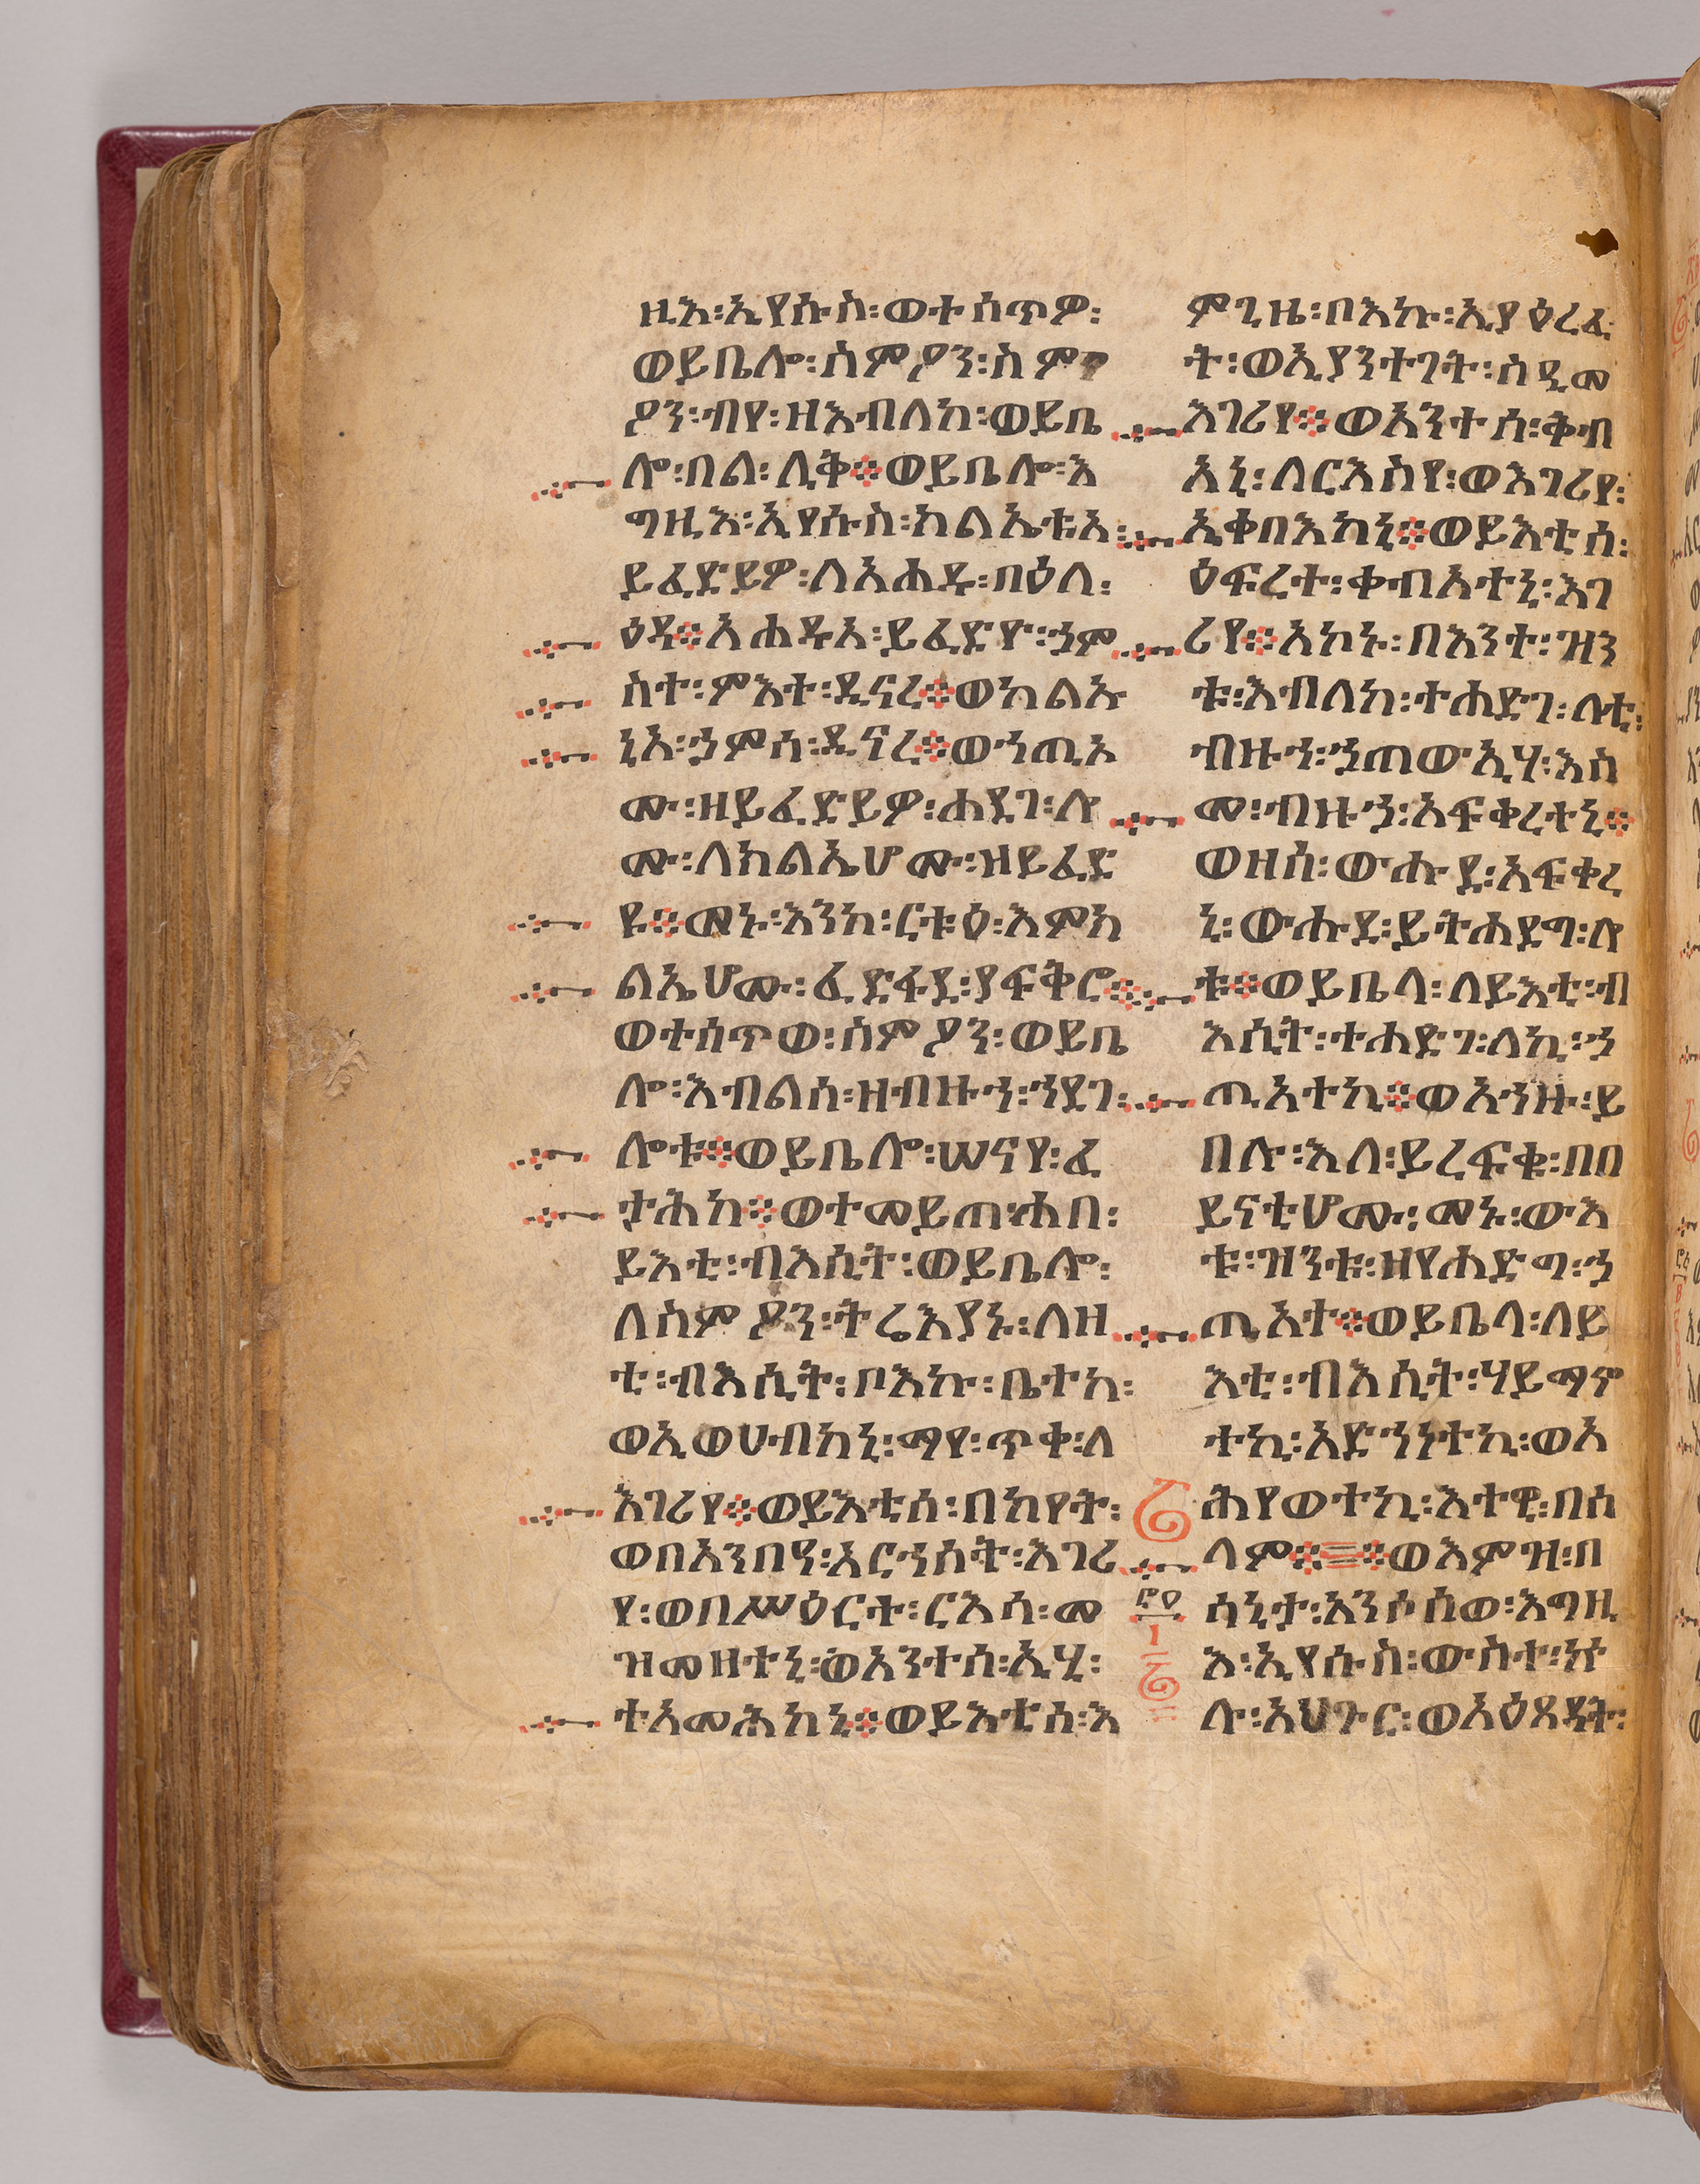 ዚእ፡ኢየሱስ፡ወተሰጥዎ፡
ወይቤሎ፡ስምዖን፡ስም
ዖን፡ብየ፡ዘእብለከ፡ወይቤ
ሎ፡በል፡ሊቅ፨ወይቤሎ፡እ
ግዚእ፡ኢየሱስ፡ክልኤቱእ፡
ይፈድይዎ፡ለአሐዱ፡በዕለ፡
ዕዳ፨አሐዱእ፡ይፈድዮ፡ኃም
ስተ፡ምእተ፡ዲናረ፨ወካልኡ
ኒእ፡ኃምሳ፡ዲናረ፨ወኀጢኦ
ሙ፡ዘይፈድይዎ፡ሐደገ፡ሎ
ሙ፡ለክልኤሆሙ፡ዘይፈድ
ዩ፨መኑ፡እንከ፡ርቱዕ፡እምክ
ልኤሆሙ፡ፈድፋደ፡ያፍቅሮ፨
ወተሰጥወ፡ስምዖን፡ወይቤ
ሎ፡እብልሰ፡ዘብዙኀ፡ኀደገ፡
ሎቱ፨ወይቤሎ፡ሠናየ፡ፈ
ታሕከ፨ወተመይጠ፡ሐበ፡
ይእቲ፡ብእሲት፡ወይቤሎ፡
ለስምዖን፡ትሬእያኑ፡ለዘ
ቲ፡ብእሲት፡ቦእኩ፡ቤተከ፡
ወኢወሀብከኒ፡ማየ፡ጥቀ፡ለ
እገሪየ፨ወይእቲሰ፡በከየት፡
ወበአንብዓ፡አርኀሰት፡እገሪ
የ፡ወበሥዕርተ፡ርእሳ፡መ
ዝመዘተኒ፡ወአንተሰ፡ኢሂ፡
ተአመሕከኒ፨ወይእቲሰ፡እ
ምጊዜ፡ቦእኩ፡ኢያዕረፈ
ት፡ወኢያንተገት፡ስዒመ
እገሪየ፨ወአንተሰ፡ቅብ
አኒ፡ለርእስየ፡ወእገሪየ፡
ኢቀባእከኒ፨ወይእቲሰ፡
ዕፍረተ፡ቀብአተኒ፡እገ
ሪየ፨አኮኑ፡በእንተ፡ዝን
ቱ፡እብለከ፡ተሐድገ፡ላቲ፡
ብዙኀ፡ኃጠውኢሃ፡እስ
መ፡ብዙኃ፡አፍቀረተኒ፨
ወዘሰ፡ውሑደ፡አፍቀረ
ኒ፡ውሑደ፡ይትሐደግ፡ሎ
ቱ፨ወይቤላ፡ለይእቲ፡ብ
እሲት፡ተሐድገ፡ለኪ፡ኃ
ጢአተኪ፨ወአኀዙ፡ይ
በሉ፡እለ፡ይረፍቁ፡በበ
ይናቲሆሙ፡መኑ፡ውእ
ቱ፡ዝንቱ፡ዘየሐድግ፡ኃ
ጢአተ፨ወይቤላ፡ለይ
እቲ፡ብእሲት፡ሃይማኖ
ተኪ፡አድኀነተኪ፡ወአ
ሕየወተኪ፡እተዊ፡በሰ
ላም፨፨ወእምዝ፡በ
ሳኒታ፡አንሶሰወ፡እግዚ
እ፡ኢየሱስ፡ውስተ፡ኵ
ሉ፡አህጉር፡ወአዕጻዳት፡